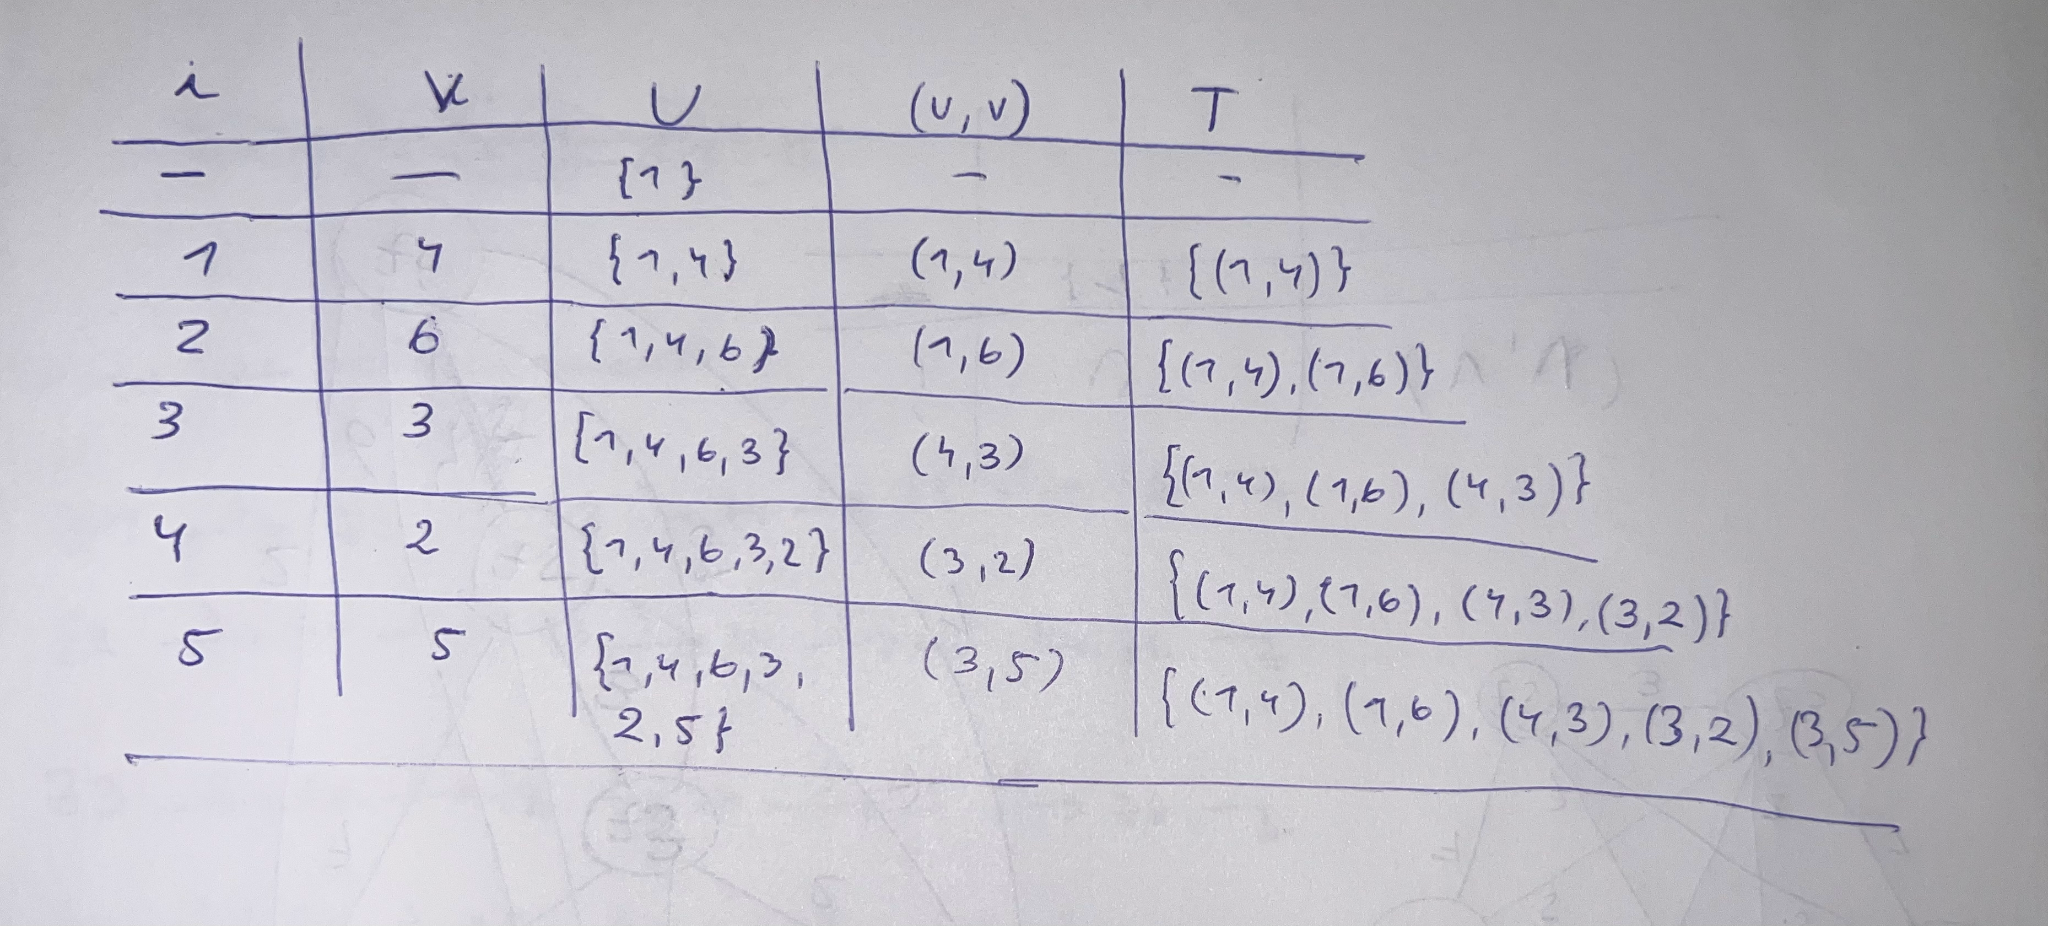 i vi U (u,v) T
— — {1} - -
1 4 {1,4} (1,4) {(1,4)}
2 6 {1,4,6} (1,6) {(1,4),(1,6)}
3 3 {1,4,6,3} (4,3) {(1,4),(1,6),(4,3)}
4 2 {1,4,6,3,2} (3,2) {(1,4),(1,6),(4,3),(3,2)}
5 5 {1,4,6,3, (3,5) {(1,4),(1,6),(4,3),(3,2),(3,5)}
2,5}